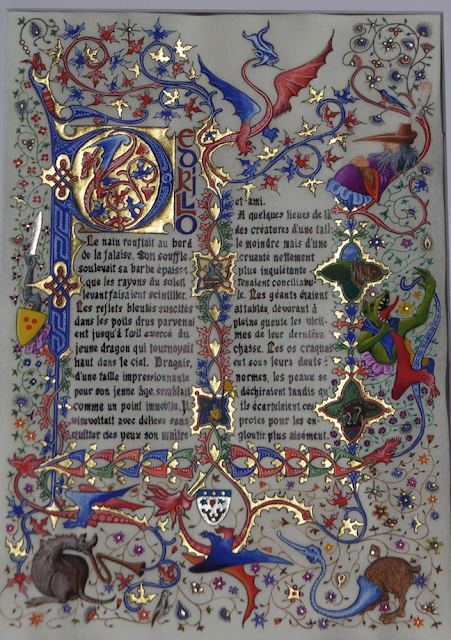 DEORILO
Le nain ronflait au bord
de la falaise. Son souffle
soulevait sa barbe épaisse
que les rayons du soleil
levant faisaient scintiller.
Les reflets bleutés suscités
dans les poils drus parvenai
ent jusqu'à l'œil exercé du
jeune dragon qui tournoyait
haut dans le ciel. Dragnir,
d'une taille impressionnante
pour son jeune âge, semblait
comme un point immobile. Il
virevoltait avec délices sans
quitter des yeux son maître
et ami.
A quelques lieues de là
des créatures d'une tail
le moindre mais d'une
cruauté nettement
plus inquiétante
tenaient conciliabu
le. Les géants étaient
attablés, dévorant à
pleins gueule les victi
mes de leur dernière
chasse. Les os craqua
ient sous leurs dents
normes, les peaux se
déchiraient tandis qu
ils écartelaient ces
proies pour les en
gloutir plus aisément.